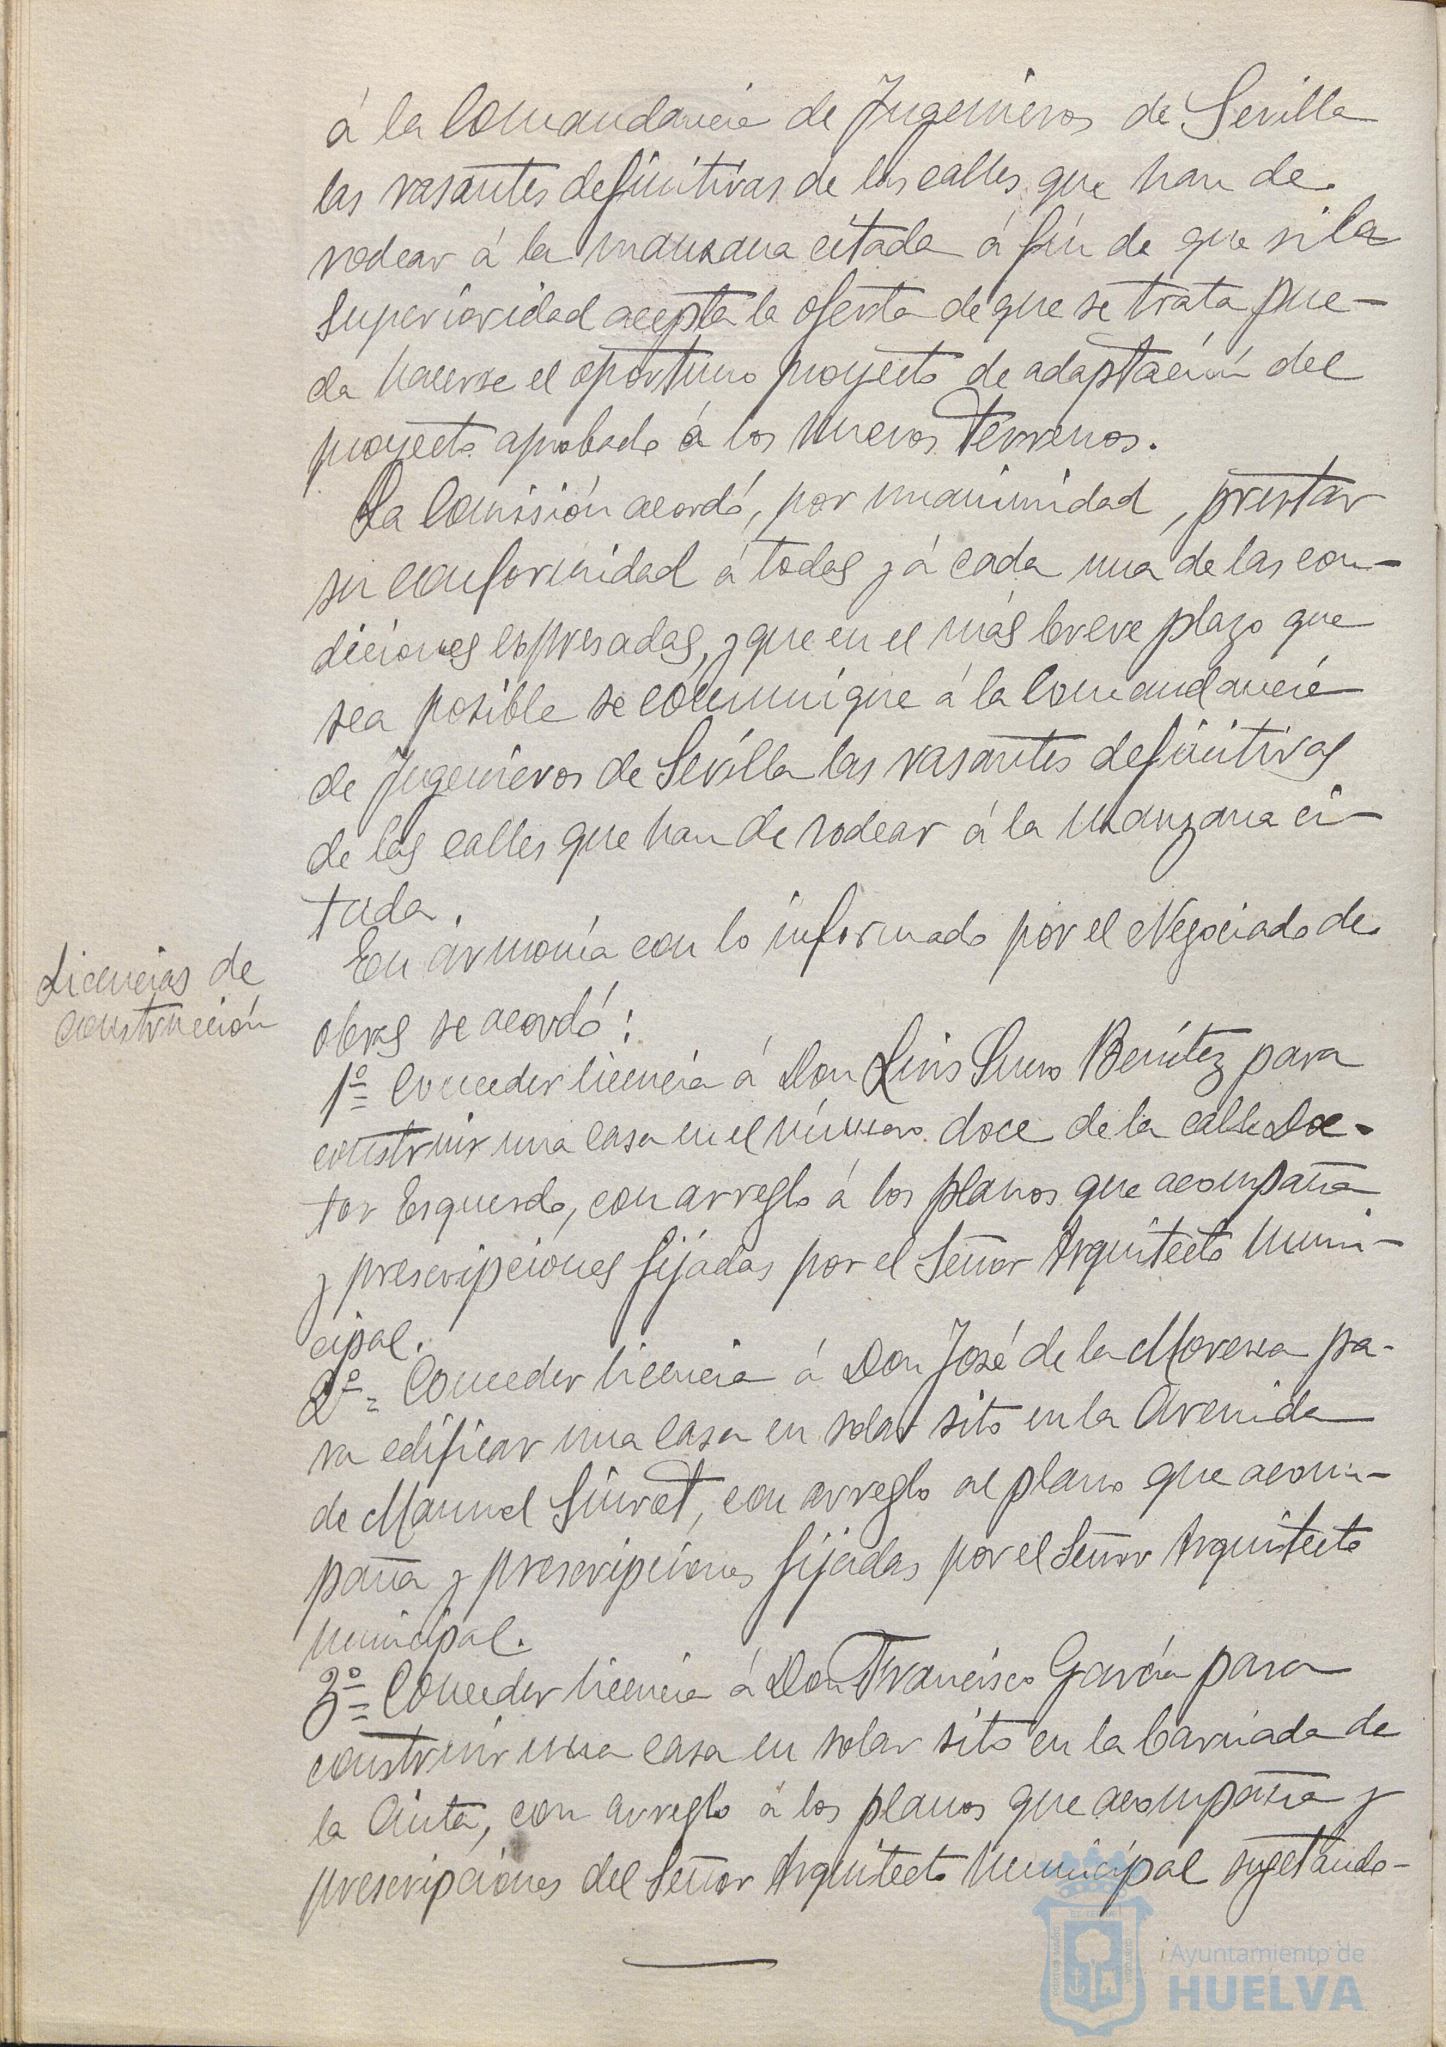 á la Comandancia de Jngenieros de Sevilla
las rasantes definitivas de las calles que han de
rodear á la manzana citada á fin de que si la
Superioridad acepta la oferta de que se trata pue-
da hacerse el oportuno proyecto de adaptación del
proyecto aprobado á los nuevos terrenos.
La Comisión acordó, por unanimidad, prestar
su conformidad á todas y á cada una de las con-
diciones expresadas, y que en el más breve plazo que
sea posible se comunique á la Comandancia
de Jngenieros de Sevilla las rasantes definitivas
de las calles que han de rodear á la manzana ci-
tada.
Licencias de
construcción
En armonía con lo informado por el Negociado de
obras se acordó:
1º= Conceder licencia á Don Luis Suero Benítez para
construir una casa en el número doce de la calle Doc-
tor Esquerdo, con arreglo á los planos que acompaña
y prescripciones fijadas por el Señor Arquitecto Muni-
cipal.
2º= Conceder licencia á Don José de la Morena pa-
ra edificar una casa en solar sito en la Avenida
de Manuel Siurot, con arreglo al plano que acom-
paña y prescripciones fijadas por el Señor Arquitecto
Municipal.
3º= Conceder licencia á Don Francisco García para
construir una casa en solar sito en la barriada de
la Cinta, con arreglo á los planos que acompaña y
prescripciones del Señor Arquitecto Municipal sugetando-
Ayuntamiento de
HUELVA